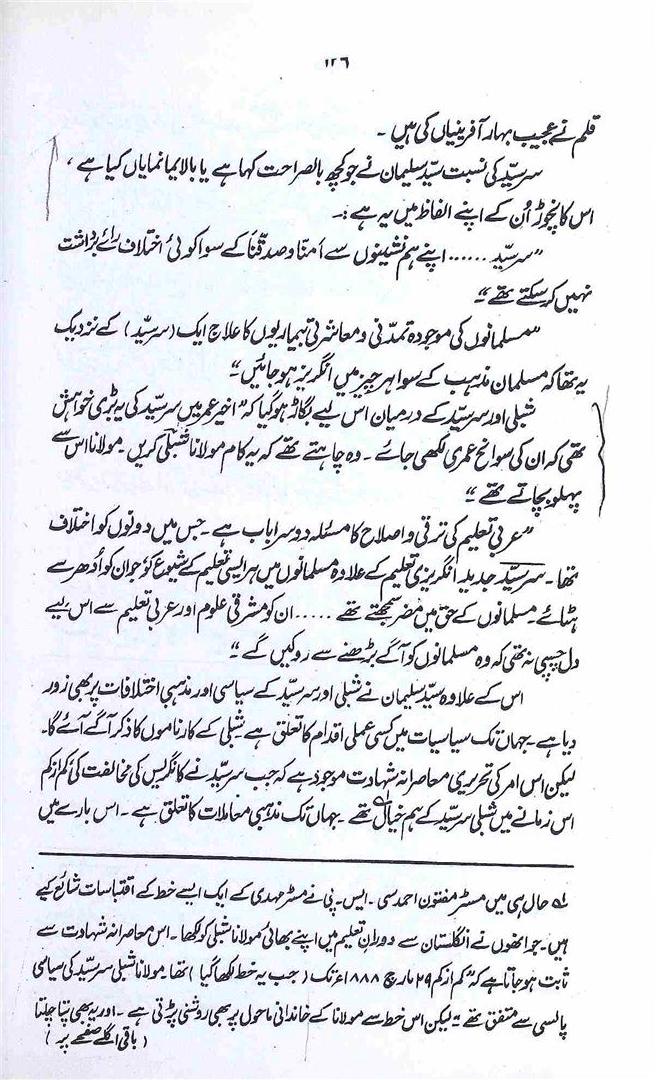 ۱۲۶
قلم نے عجیب بہار آفرینیاں کی ہیں ۔
سرسیّد کی نسبت سیّد سلیمان نے جو کچھ بالصراحت کہا ہے یا بالایما نمایاں کیا ہے ،
اس کا نچوڑ اُن کے اپنے الفاظ میں یہ ہے :۔
”سرسیّد ...... اپنے ہم نشینوں سے اٰمنّا وصدّقنا کے سوا کوئی اختلاف رائے برداشت
نہیں کر سکتے تھے“
”مسلمانوں کی موجودہ تمدنی و معاشرتی بیماریوں کا علاج ایک (سرسیّد) کے نزدیک
یہ تھا کہ مسلمان مذہب کے سوا ہر چیز میں انگریز ہو جائیں“
شبلی اور سرسیّد کے درمیان اس لیے بگاڑ ہو گیا کہ ”اخیر عمر میں سرسیّد کی یہ بڑی خواہش
تھی کہ ان کی سوانح عمری لکھی جائے ۔ وہ چاہتے تھے کہ یہ کام مولانا شبلی کریں ۔ مولانا اس سے
پہلو بچاتے تھے“
”عربی تعلیم کی ترقی و اصلاح کا مسئلہ دوسرا باب ہے ۔ جس میں دونوں کو اختلاف
تھا ۔ سرسیّد جدید انگریزی تعلیم کے علاوہ مسلمانوں میں ہر ایسی تعلیم کے شیوع کو جو ان کو اُدھر سے
ہٹائے ۔ مسلمانوں کے حق میں مضر سمجھتے تھے ..... ان کو مشرقی علوم اور عربی تعلیم سے اس لیے
دل چسپی نہ تھی کہ وہ مسلمانوں کو آگے بڑھنے سے روکیں گے“
اس کے علاوہ سیّد سلیمان نے شبلی اور سرسیّد کے سیاسی اور مذہبی اختلافات پر بھی زور
دیا ہے ۔ جہاں تک سیاسیات میں کسی عملی اقدام کا تعلق ہے شبلی کے کارناموں کا ذکر آگے آئے گا ۔
لیکن اس امر کی تحریری معاصرانہ شہادت موجود ہے کہ جب سرسیّد نے کانگریس کی مخالفت کی کم از کم
اس زمانے میں شبلی سرسیّد کے ہم خیال تھے ۔ جہاں تک مذہبی معاملات کا تعلق ہے ۔ اس بارے میں
لہ حال ہی میں مسٹر مفتون احمد سی ۔ ایس ۔ پی نے مسٹر مہدی کے ایک ایسے خط کے اقتباسات شائع کیے
ہیں ۔ جو انھوں نے انگلستان سے دورانِ تعلیم میں اپنے بھائی مولانا شبلی کو لکھا ۔ اس معاصرانہ شہادت سے
ثابت ہو جاتا ہے کہ ”کم از کم ۲۹ مارچ ۱۸۸۸ء تک (جب یہ خط لکھا گیا) تھا ۔ مولانا شبلی سرسیّد کی سیاسی
پالسی سے متفق تھے“ لیکن اس خط سے مولانا کے خاندانی ماحول پر بھی روشنی پڑتی ہے ۔ اور یہ بھی پتا چلتا
( باقی اگلے صفحے پر )